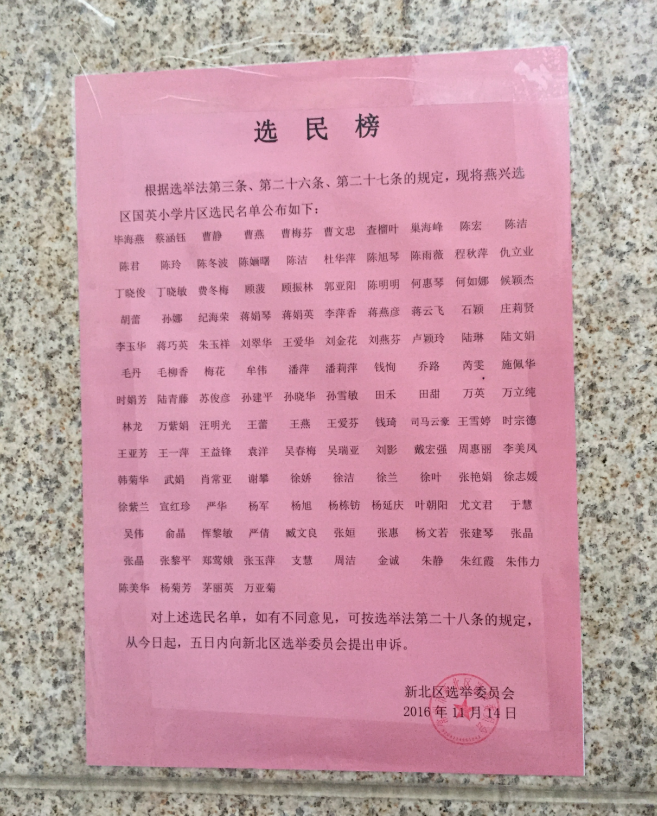 选 民 榜
根据选举法第三条、第二十六条、第二十七条的规定，现将燕兴选
区国英小学片区选民名单公布如下：
毕海燕 蔡涵钰 曹静 曹燕 曹梅芬 曹文忠 查榴叶 巢海峰 陈宏 陈洁
陈君 陈玲 陈冬波 陈婳曙 陈洁 杜华萍 陈旭琴 陈雨薇 程秋萍 仇立业
丁晓俊 丁晓敏 费冬梅 顾菠 顾振林 郭亚阳 陈明明 何惠琴 何如娜 候颖杰
胡蕾 孙娜 纪海荣 蒋娟琴 蒋娟英 李萍香 蒋燕彦 蒋云飞 石颖 庄莉贤
李玉华 蒋巧英 朱玉祥 刘翠华 王爱华 刘金花 刘燕芬 卢颖玲 陆琳 陆文娟
毛丹 毛柳香 梅花 牟伟 潘萍 潘莉萍 钱恂 乔路 芮雯 施佩华
时娟芳 陆青藤 苏俊彦 孙建平 孙晓华 孙雪敏 田禾 田甜 万英 万立纯
林龙 万紫娟 汪明光 王蕾 王燕 王爱芬 钱琦 司马云豪 王雪婷 时宗德
王亚芳 王一萍 王益锋 袁洋 吴春梅 吴瑞亚 刘影 戴宏强 周惠丽 李美凤
韩菊华 武娟 肖常亚 谢攀 徐娇 徐洁 徐兰 徐叶 张艳娟 徐志媛
徐紫兰 宣红珍 严华 杨军 杨旭 杨栋钫 杨延庆 叶朝阳 尤文君 于慧
吴伟 俞晶 恽黎敏 严倩 臧文良 张姮 张惠 杨文若 张建琴 张晶
张晶 张黎平 郑莺娥 张玉萍 支慧 周洁 金诚 朱静 朱红霞 朱伟力
陈美华 杨菊芳 茅丽英 万亚菊
对上述选民名单，如有不同意见，可按选举法第二十八条的规定，
从今日起，五日内向新北区选举委员会提出申诉。
新北区选举委员会
2016 年 11 月 14 日